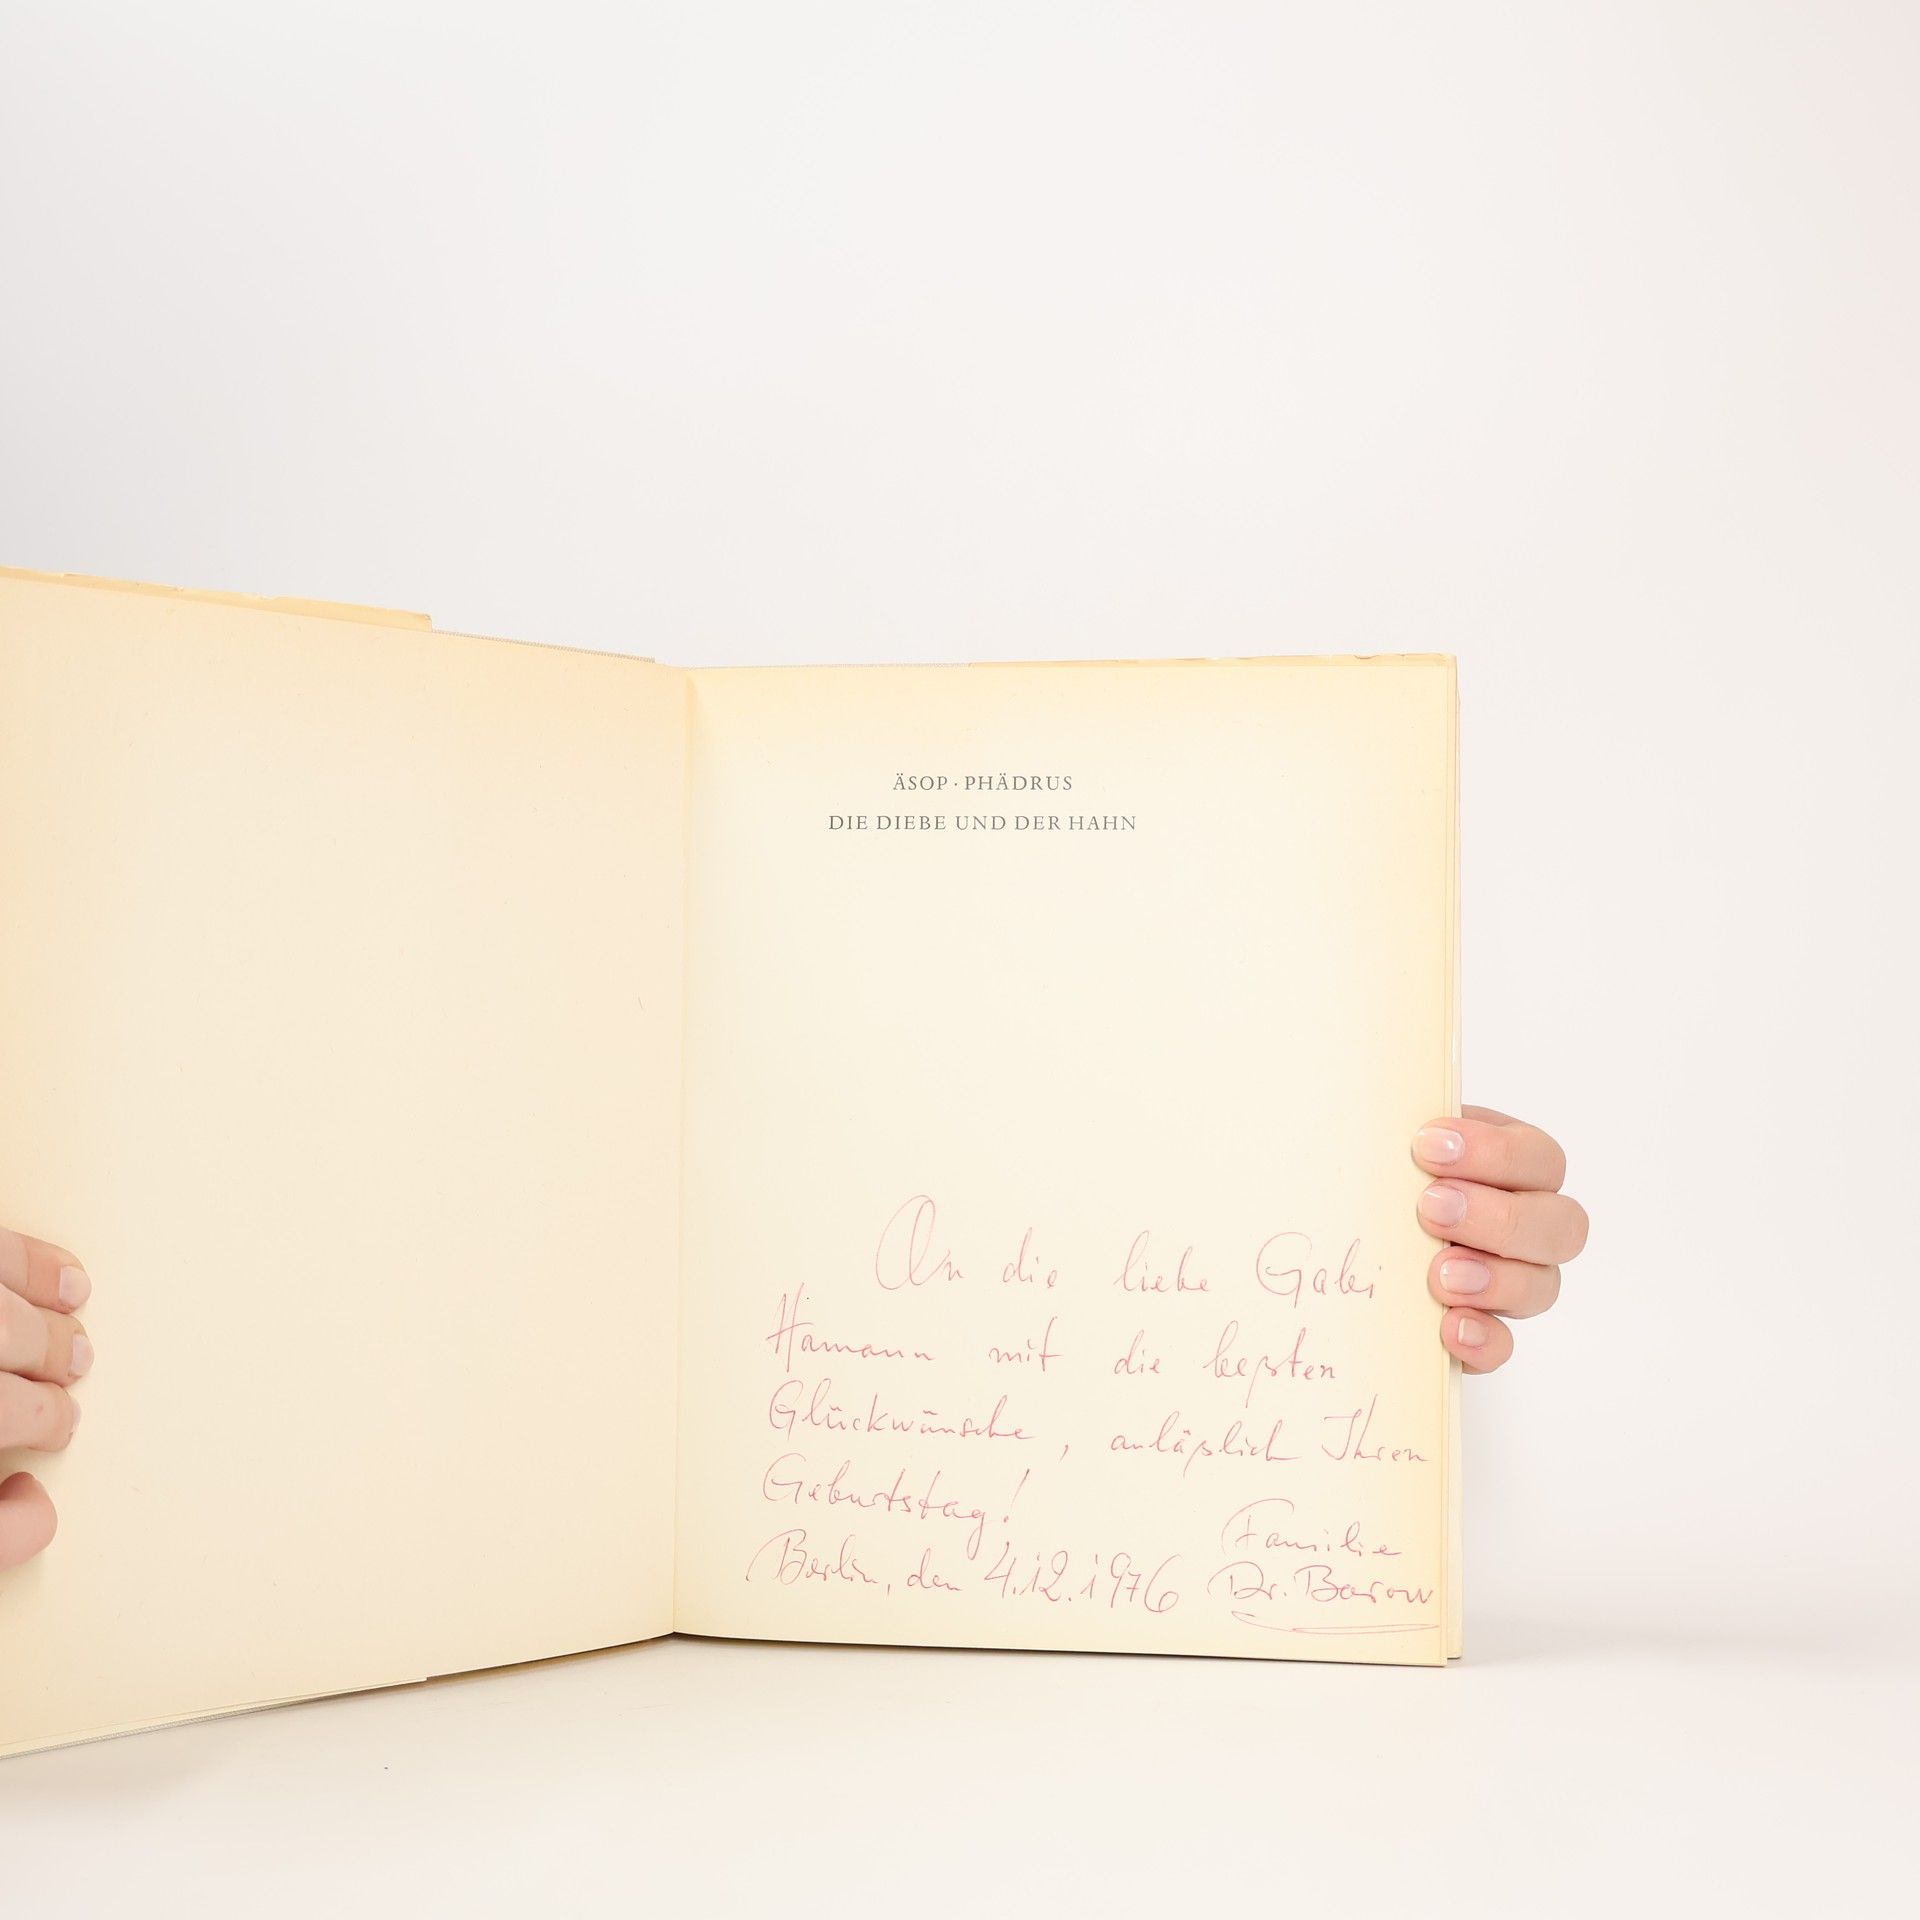 ÄSOP · PHÄDRUS
DIE DIEBE UND DER HAHN
An die liebe Gabi
Hamann mit die beßten
Glückwünsche, anläßlich Ihren
Geburtstag!
Familie
Berlin, den 4.12.1976 Dr. Barow